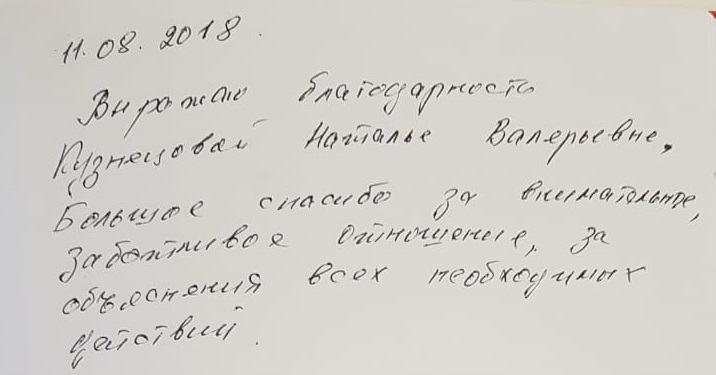 11.08.2018.
Выражаю благодарность
Кузнецовой Наталье Валерьевне,
Большое спасибо за внимательное,
заботливое отношение, за
объяснения всех необходимых
действий.